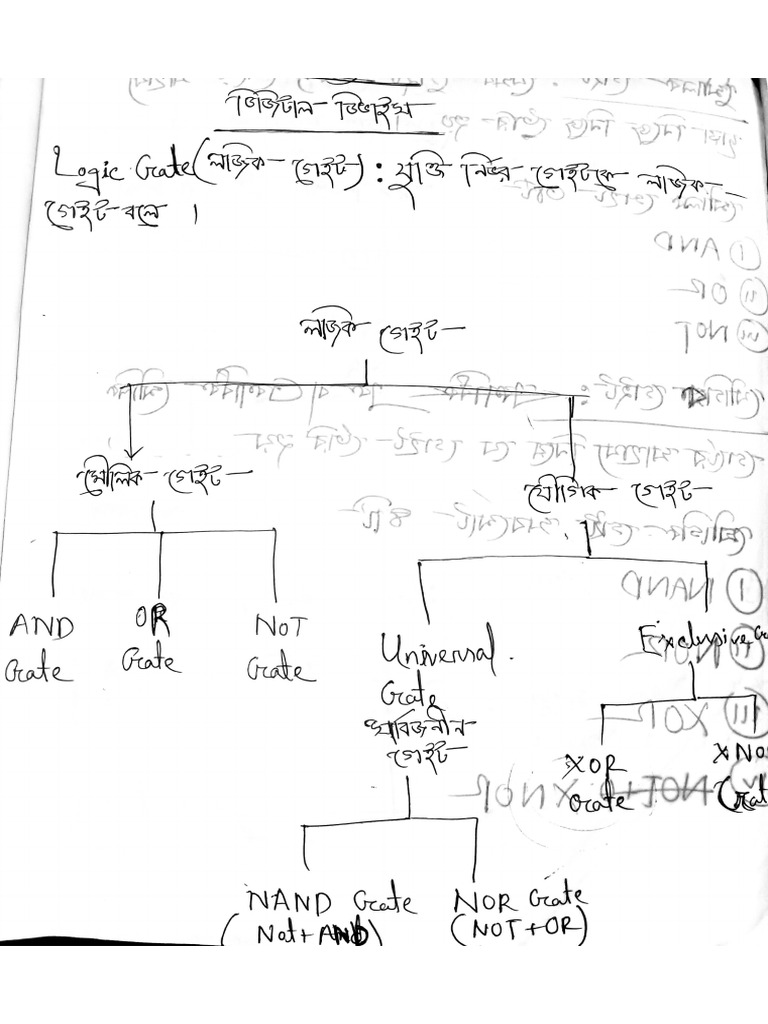 ডিজিটাল ডিভাইস
Logic Gate (লজিক গেইট) : যুক্তি নির্ভর গেইটকে লজিক
গেইট বলে ।
লজিক গেইট
মৌলিক গেইট
যৌগিক গেইট
AND
Gate
OR
Gate
NOT
Gate
Universal
Gate
সার্বজনীন
গেইট
Exclusive
XOR
Gate
XNO
Gat
NAND Gate
(Not+AND)
NOR Gate
(NOT+OR)